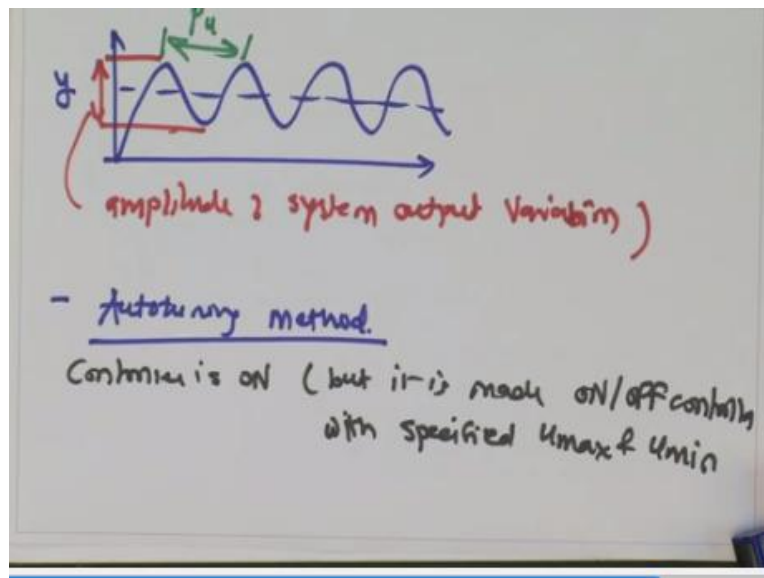 Pu
y
amplitude & system output variation)
- Autotuning method.
Controller is ON (but it is made ON/OFF controlln
with specified umax & umin